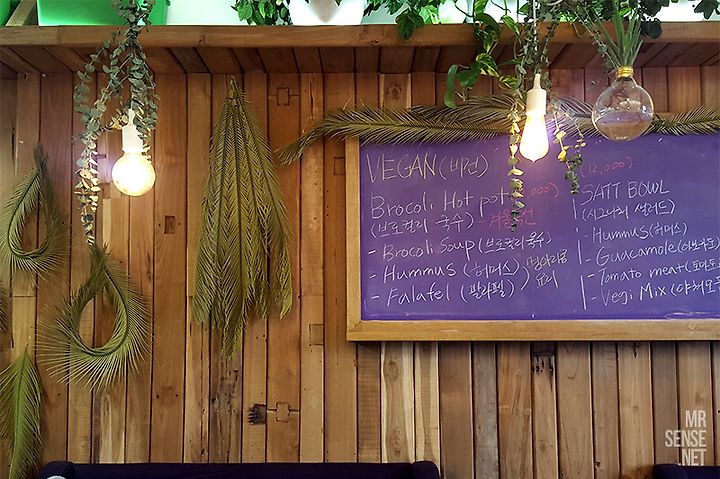 VEGAN (비건)
Brocoli Hot pot
(브로컬리 국수) - 겨울
- Brocoli Soup (브로컬리 육수)
- Hummus (허머스)
- Falafel (팔라펠)
병아리콩
요리
(12,000)
SATT BOWL
- Hummus (허머스)
- Guacamole (아보카도)
- Tomato meat (토마토
- Vegi Mix (야채모둠
MR
SENSE
.NET